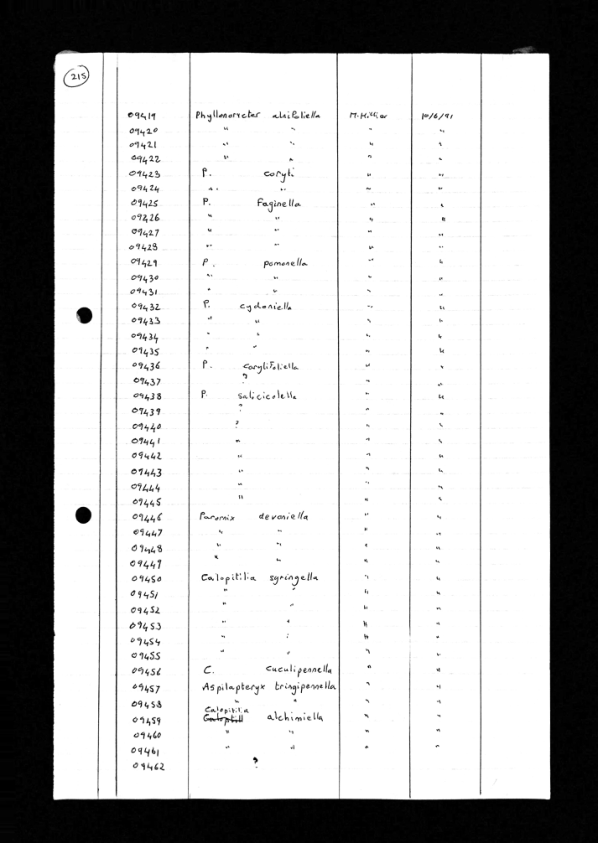 215
09419 Phyllonorycter alnifoliella M. Hillier 10/6/91
09420 " " " "
09421 " " " "
09422 " " " "
09423 P. coryli " "
09424 " " " "
09425 P. Faginella " "
09426 " " " "
09427 " " " "
09428 " " " "
09429 P. pomonella " "
09430 " " " "
09431 " " " "
09432 P. cydoniella " "
09433 " " " "
09434 " " " "
09435 " " " "
09436 P. corylifoliella " "
09437 ? " "
09438 P. salicicolella " "
09439 ? " "
09440 ? " "
09441 " " "
09442 " " "
09443 " " "
09444 " " "
09445 " " "
09446 Paromix devoniella " "
09447 " " " "
09448 " " " "
09449 " " " "
09450 Calopitilia syringella " "
09451 " " " "
09452 " " " "
09453 " " " "
09454 " " " "
09455 " "
09456 C. cuculipennella " "
09457 Aspilapteryx tringipennella " "
09458 " " " "
09459 Calopitilia alchimiella " "
09460 " " " "
09461 " " " "
09462 ?